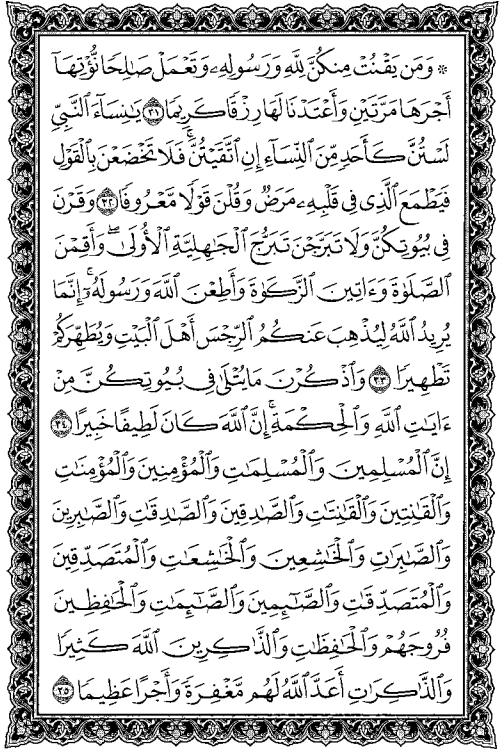 ۞ وَمَن يَقْنُتْ مِنكُنَّ لِلَّهِ وَرَسُولِهِۦ وَتَعْمَلْ صَٰلِحًا نُّؤْتِهَآ
أَجْرَهَا مَرَّتَيْنِ وَأَعْتَدْنَا لَهَا رِزْقًا كَرِيمًا ٣١ يَٰنِسَآءَ ٱلنَّبِىِّ
لَسْتُنَّ كَأَحَدٍ مِّنَ ٱلنِّسَآءِ إِنِ ٱتَّقَيْتُنَّ ۚ فَلَا تَخْضَعْنَ بِٱلْقَوْلِ
فَيَطْمَعَ ٱلَّذِى فِى قَلْبِهِۦ مَرَضٌ وَقُلْنَ قَوْلًا مَّعْرُوفًا ٣٢ وَقَرْنَ
فِى بُيُوتِكُنَّ وَلَا تَبَرَّجْنَ تَبَرُّجَ ٱلْجَٰهِلِيَّةِ ٱلْأُولَىٰ ۖ وَأَقِمْنَ
ٱلصَّلَوٰةَ وَءَاتِينَ ٱلزَّكَوٰةَ وَأَطِعْنَ ٱللَّهَ وَرَسُولَهُۥٓ ۚ إِنَّمَا
يُرِيدُ ٱللَّهُ لِيُذْهِبَ عَنكُمُ ٱلرِّجْسَ أَهْلَ ٱلْبَيْتِ وَيُطَهِّرَكُمْ
تَطْهِيرًا ٣٣ وَٱذْكُرْنَ مَا يُتْلَىٰ فِى بُيُوتِكُنَّ مِنْ
ءَايَٰتِ ٱللَّهِ وَٱلْحِكْمَةِ ۚ إِنَّ ٱللَّهَ كَانَ لَطِيفًا خَبِيرًا ٣٤
إِنَّ ٱلْمُسْلِمِينَ وَٱلْمُسْلِمَٰتِ وَٱلْمُؤْمِنِينَ وَٱلْمُؤْمِنَٰتِ
وَٱلْقَٰنِتِينَ وَٱلْقَٰنِتَٰتِ وَٱلصَّٰدِقِينَ وَٱلصَّٰدِقَٰتِ وَٱلصَّٰبِرِينَ
وَٱلصَّٰبِرَٰتِ وَٱلْخَٰشِعِينَ وَٱلْخَٰشِعَٰتِ وَٱلْمُتَصَدِّقِينَ
وَٱلْمُتَصَدِّقَٰتِ وَٱلصَّٰٓئِمِينَ وَٱلصَّٰٓئِمَٰتِ وَٱلْحَٰفِظِينَ
فُرُوجَهُمْ وَٱلْحَٰفِظَٰتِ وَٱلذَّٰكِرِينَ ٱللَّهَ كَثِيرًا
وَٱلذَّٰكِرَٰتِ أَعَدَّ ٱللَّهُ لَهُم مَّغْفِرَةً وَأَجْرًا عَظِيمًا ٣٥